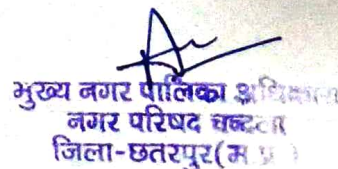 मुख्य नगर पालिका अधिकारी
नगर परिषद चन्दला
जिला-छतरपुर(म.प्र.)